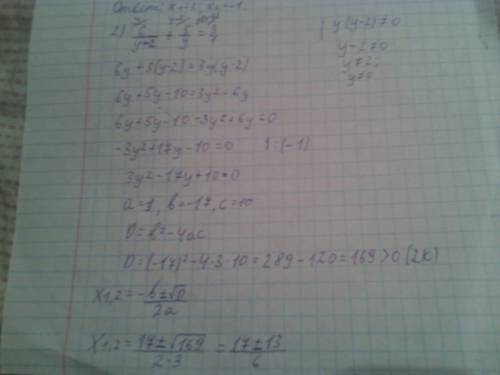 Ответ: x₁=2, x₂=-1.
2) 6/(y-2) + 5/y = 3/1 | y(y-2)≠0
y-2≠0
y≠2;
y≠0
6y+5(y-2)=3y(y-2)
6y+5y-10=3y²-6y
6y+5y-10-3y²+6y=0
-3y²+17y-10=0 |:(-1)
3y²-17y+10=0
a=3, b=-17, c=10
D=b²-4ac
D=(-17)²-4·3·10=289-120=169>0 (2к)
x1,2=(-b±√D)/2a
x1,2=(17±√169)/(2·3)=(17±13)/6